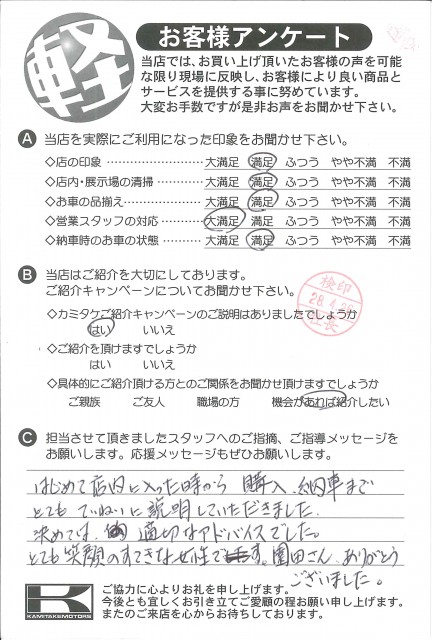 軽
お客様アンケート
当店では、お買い上げ頂いたお客様の声を可能
な限り現場に反映し、お客様により良い商品と
サービスを提供する事に努めています。
大変お手数ですが是非お声をお聞かせ下さい。
A 当店を実際にご利用になった印象をお聞かせ下さい。
◇店の印象 ………………… 大満足 満足 ふつう やや不満 不満
◇店内・展示場の清掃 ………… 大満足 満足 ふつう やや不満 不満
◇お車の品揃え ……………… 大満足 満足 ふつう やや不満 不満
◇営業スタッフの対応 ………… 大満足 満足 ふつう やや不満 不満
◇納車時のお車の状態 ………… 大満足 満足 ふつう やや不満 不満
B 当店はご紹介を大切にしております。
ご紹介キャンペーンについてお聞かせ下さい。
検印
28.4.26
社長
◇カミタケご紹介キャンペーンのご説明はありましたでしょうか
はい いいえ
◇ご紹介を頂けますでしょうか
はい いいえ
◇具体的にご紹介頂ける方とのご関係をお聞かせ頂けますでしょうか
ご親族 ご友人 職場の方 機会があれば紹介したい
C 担当させて頂きましたスタッフへのご指摘、ご指導メッセージを
お願いします。応援メッセージもぜひお願いします。
はじめて店内に入った時から 購入、納車まで
とても ていねいに 説明していただきました。
決めては、適切なアドバイスでした。
とても 笑顔のすてきな女性です。園田さん、ありがとう
ございました。
K
KAMITAKEMOTORS
ご協力に心よりお礼を申し上げます。
今後とも宜しくお引き立てご愛顧の程お願い申し上げます。
またのご来店を心からお待ちしております。